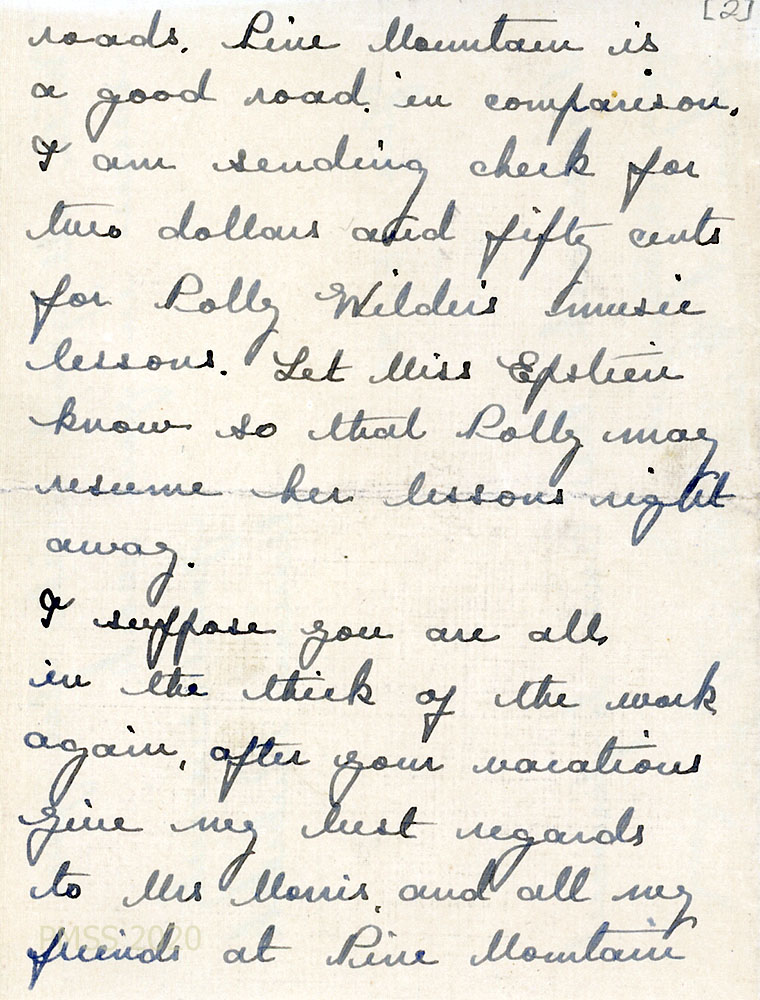 [2]
roads. Pine Mountain is
a good road in comparison.
I am sending check for
two dollars and fifty cents
for Polly Wilder's music
lessons. Let Miss Epstein
know so that Polly may
resume her lessons right
away.
I suppose you are all
in the thick of the work
again, after your vacations
Give my best regards
to Mrs Morris, and all my
friends at Pine Mountain
PMSS 2020